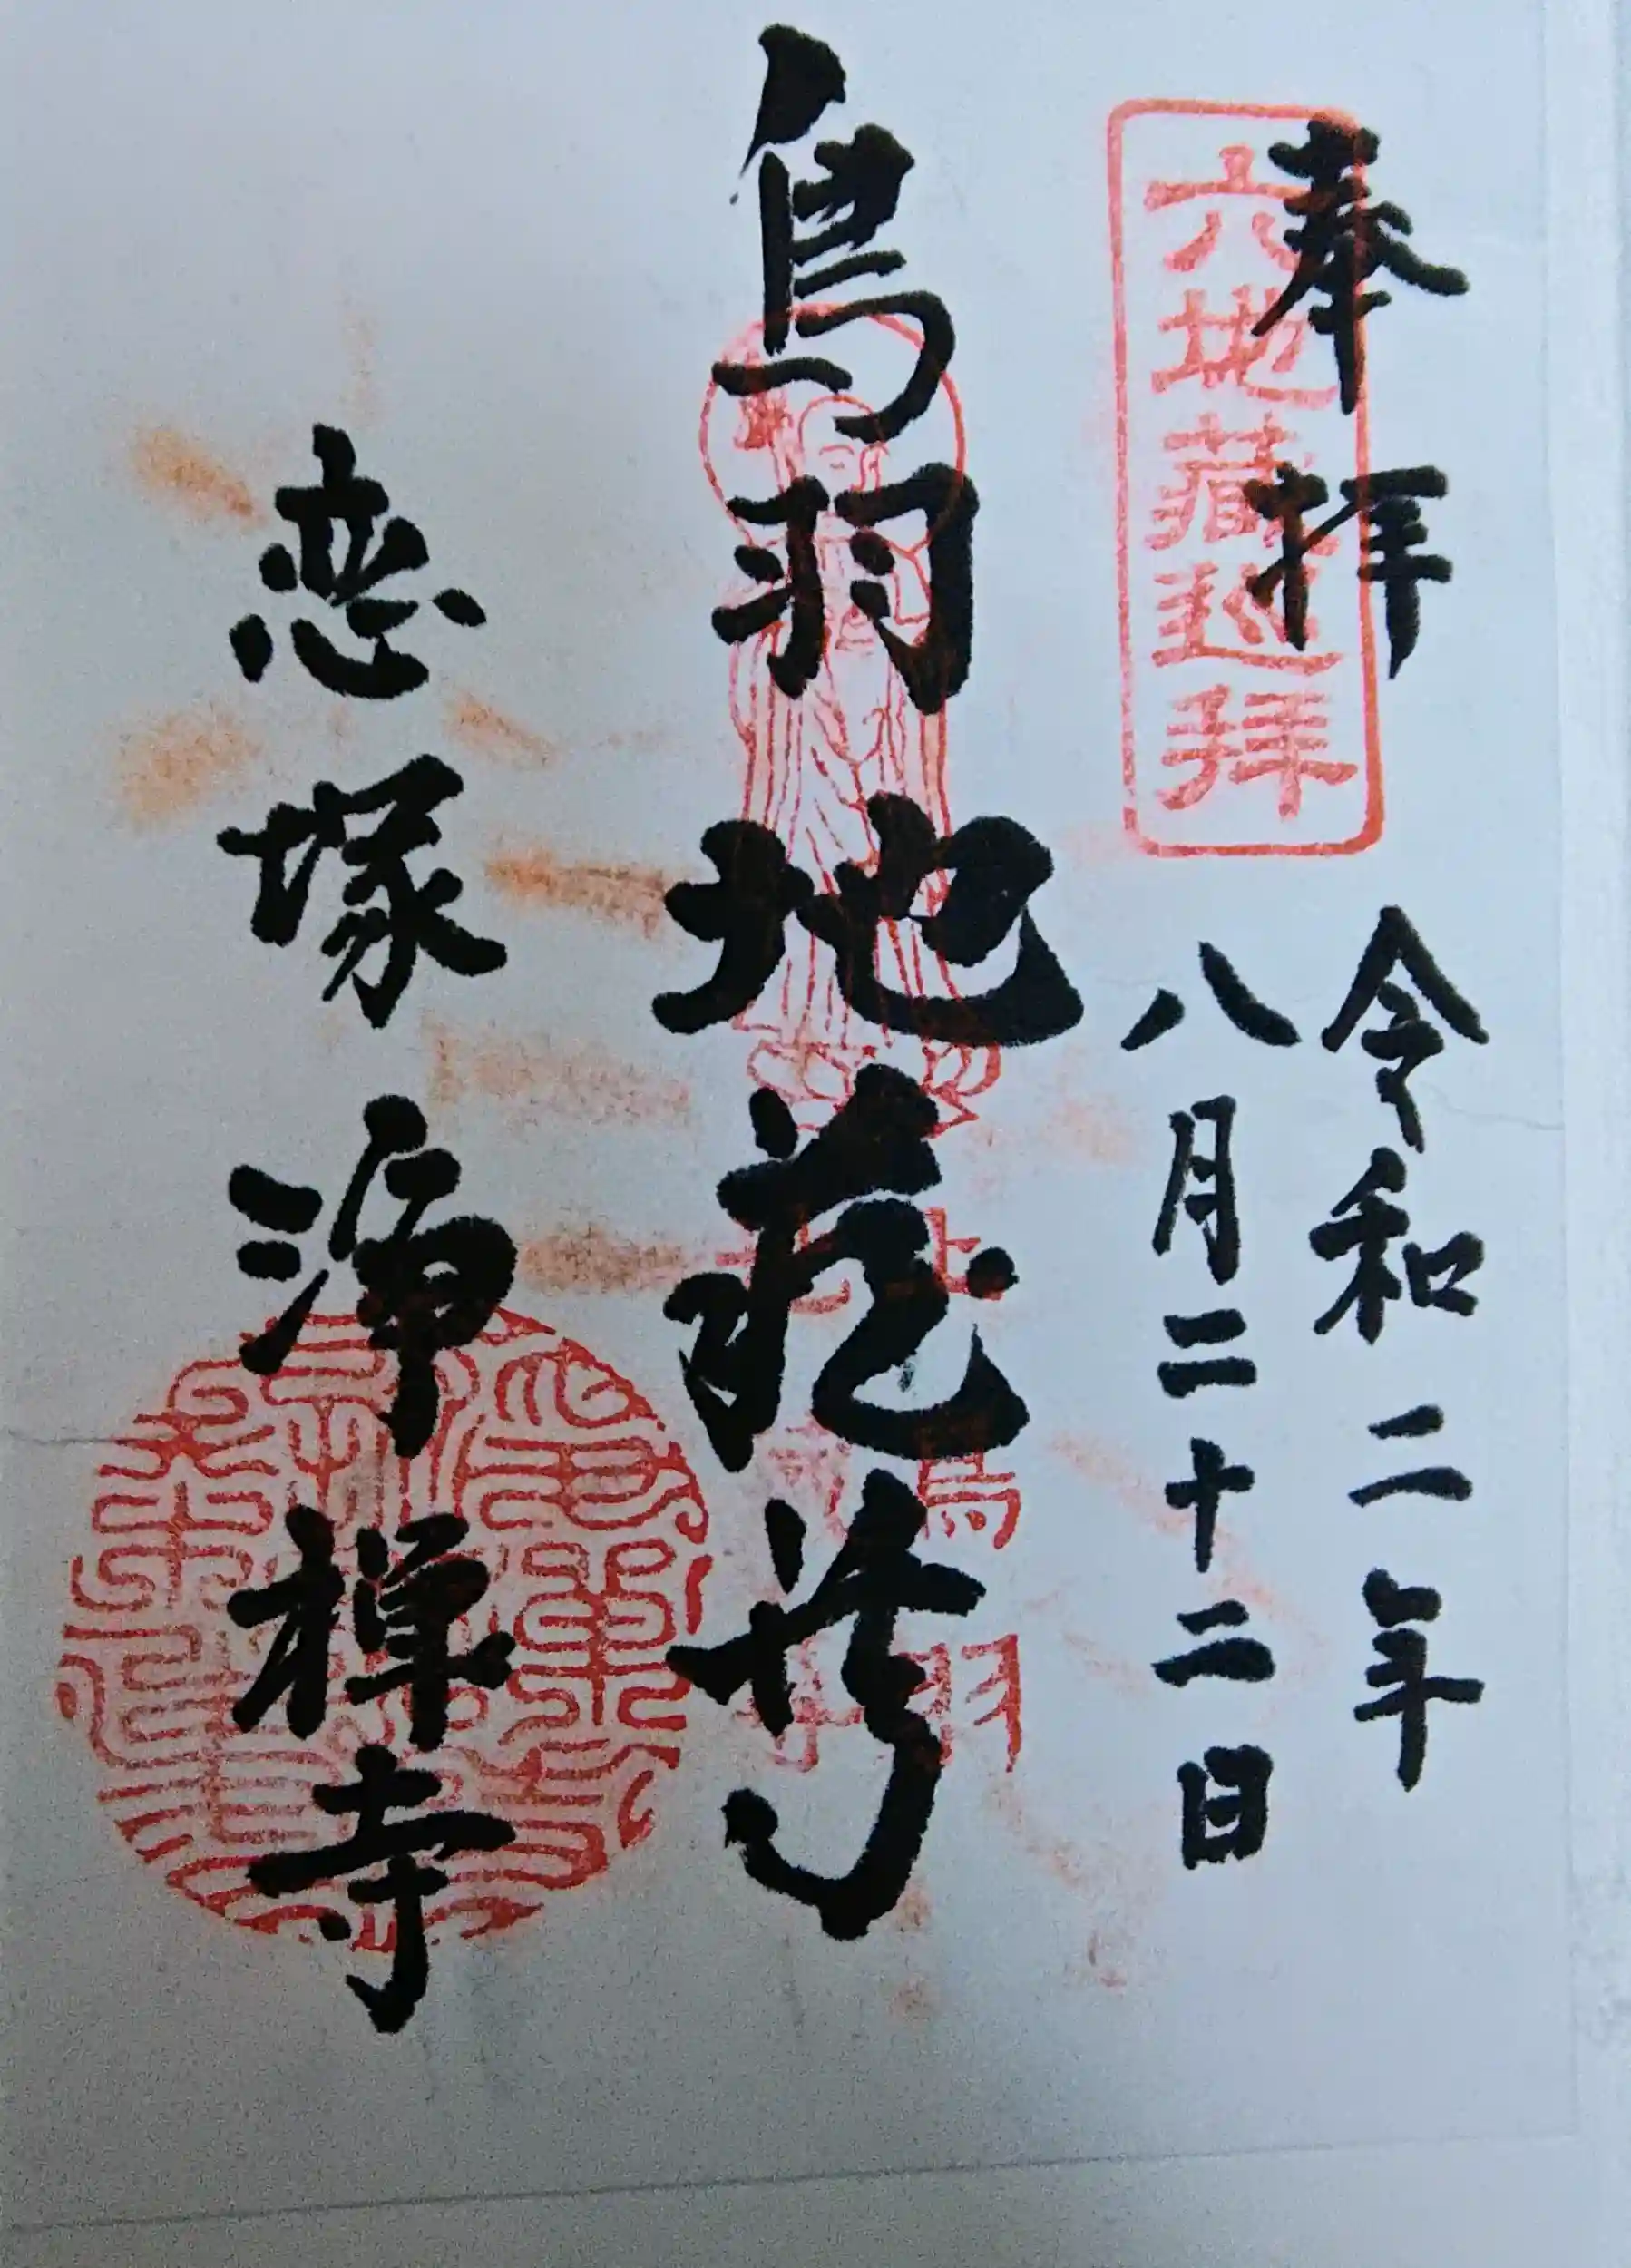 奉拝
六地蔵巡拝
令和二年
八月二十二日
鳥羽地蔵尊
鳥羽
恋塚浄禅寺